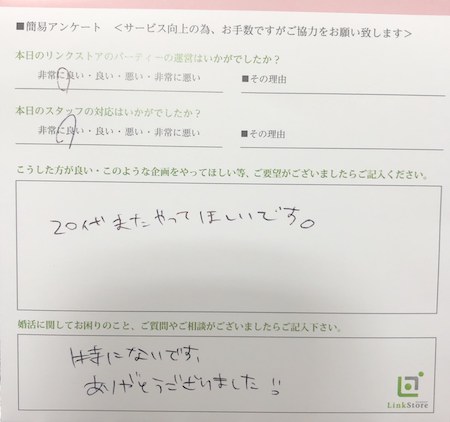 ■簡易アンケート　＜サービス向上の為、お手数ですがご協力をお願い致します＞
本日のリンクストアのパーティーの運営はいかがでしたか？
非常に良い・良い・悪い・非常に悪い　■その理由
本日のスタッフの対応はいかがでしたか？
非常に良い・良い・悪い・非常に悪い　■その理由
こうした方が良い・このような企画をやってほしい等、ご要望がございましたらご記入ください。
20代またやってほしいです。
婚活に関してお困りのこと、ご質問やご相談がございましたらご記入下さい。
特にないです。
ありがとうございました!!
LinkStore